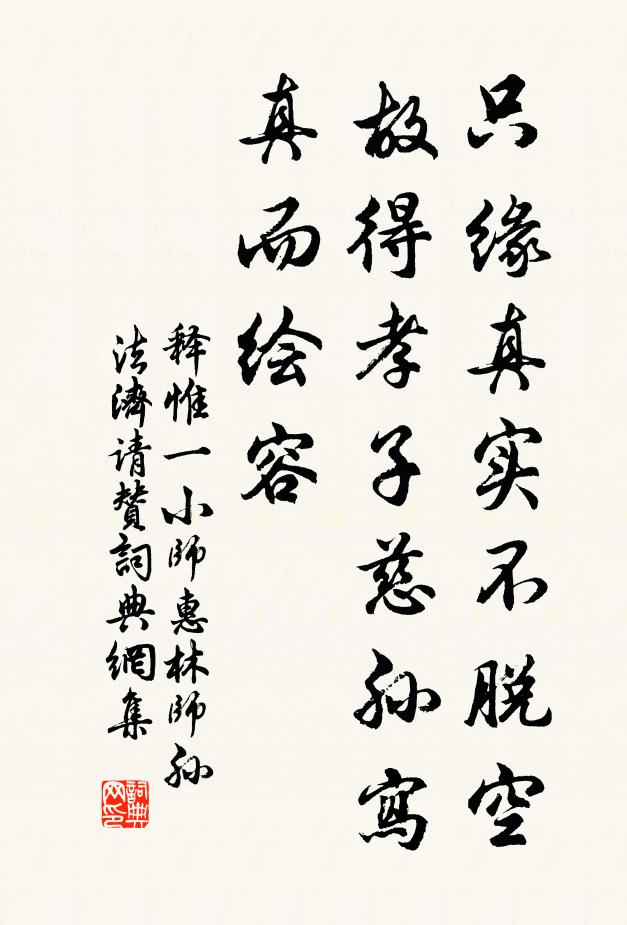 只缘真实不脱空
故得孝子慈孙寫
真而绘容
释惟一小师惠林师孙
法濟请赞詞典網集
詞典
网印